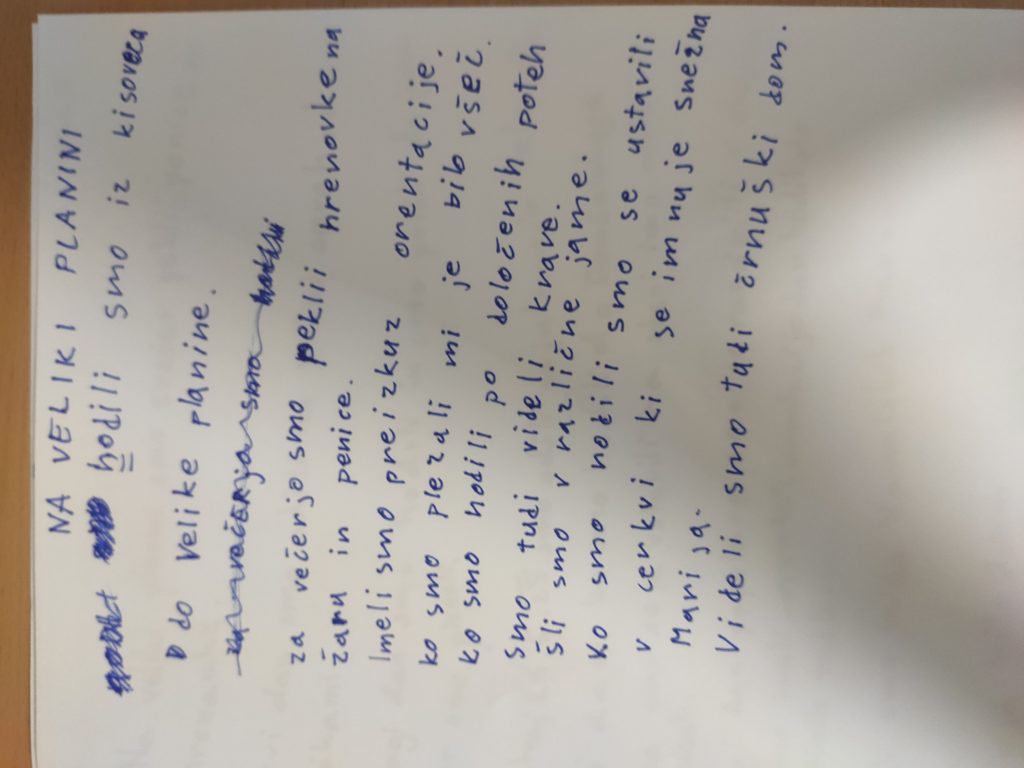 NA VELIKI PLANINI
hodili smo iz kisoveca
D do Velike planine.
za večerjo smo pekli hrenovke na
žaru in penice.
Imeli smo preizkuz orentacije.
ko smo plezali mi je bib všeč.
ko smo hodili po določenih poteh
smo tudi videli krave.
šli smo v različne jame.
Ko smo hodili smo se ustavili
v cerkvi ki se imnuje snežna
Marija.
Videli smo tudi črnuški dom.